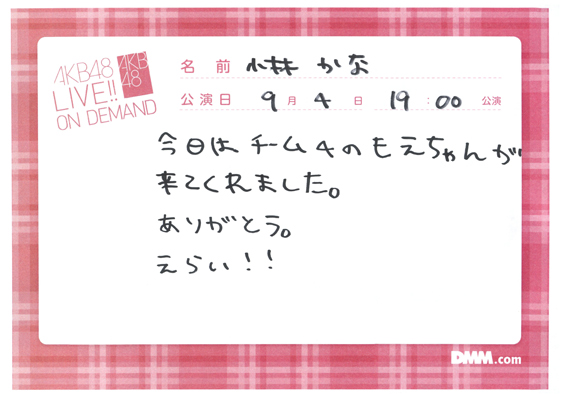 AKB48
LIVE!!
ON DEMAND
AKB
48
名 前 小林 かな
公演日 9 月 4 日 19 : 00 公演
今日は チーム4のもえちゃんが
来てくれました。
ありがとう。
えらい!!
DMM.com